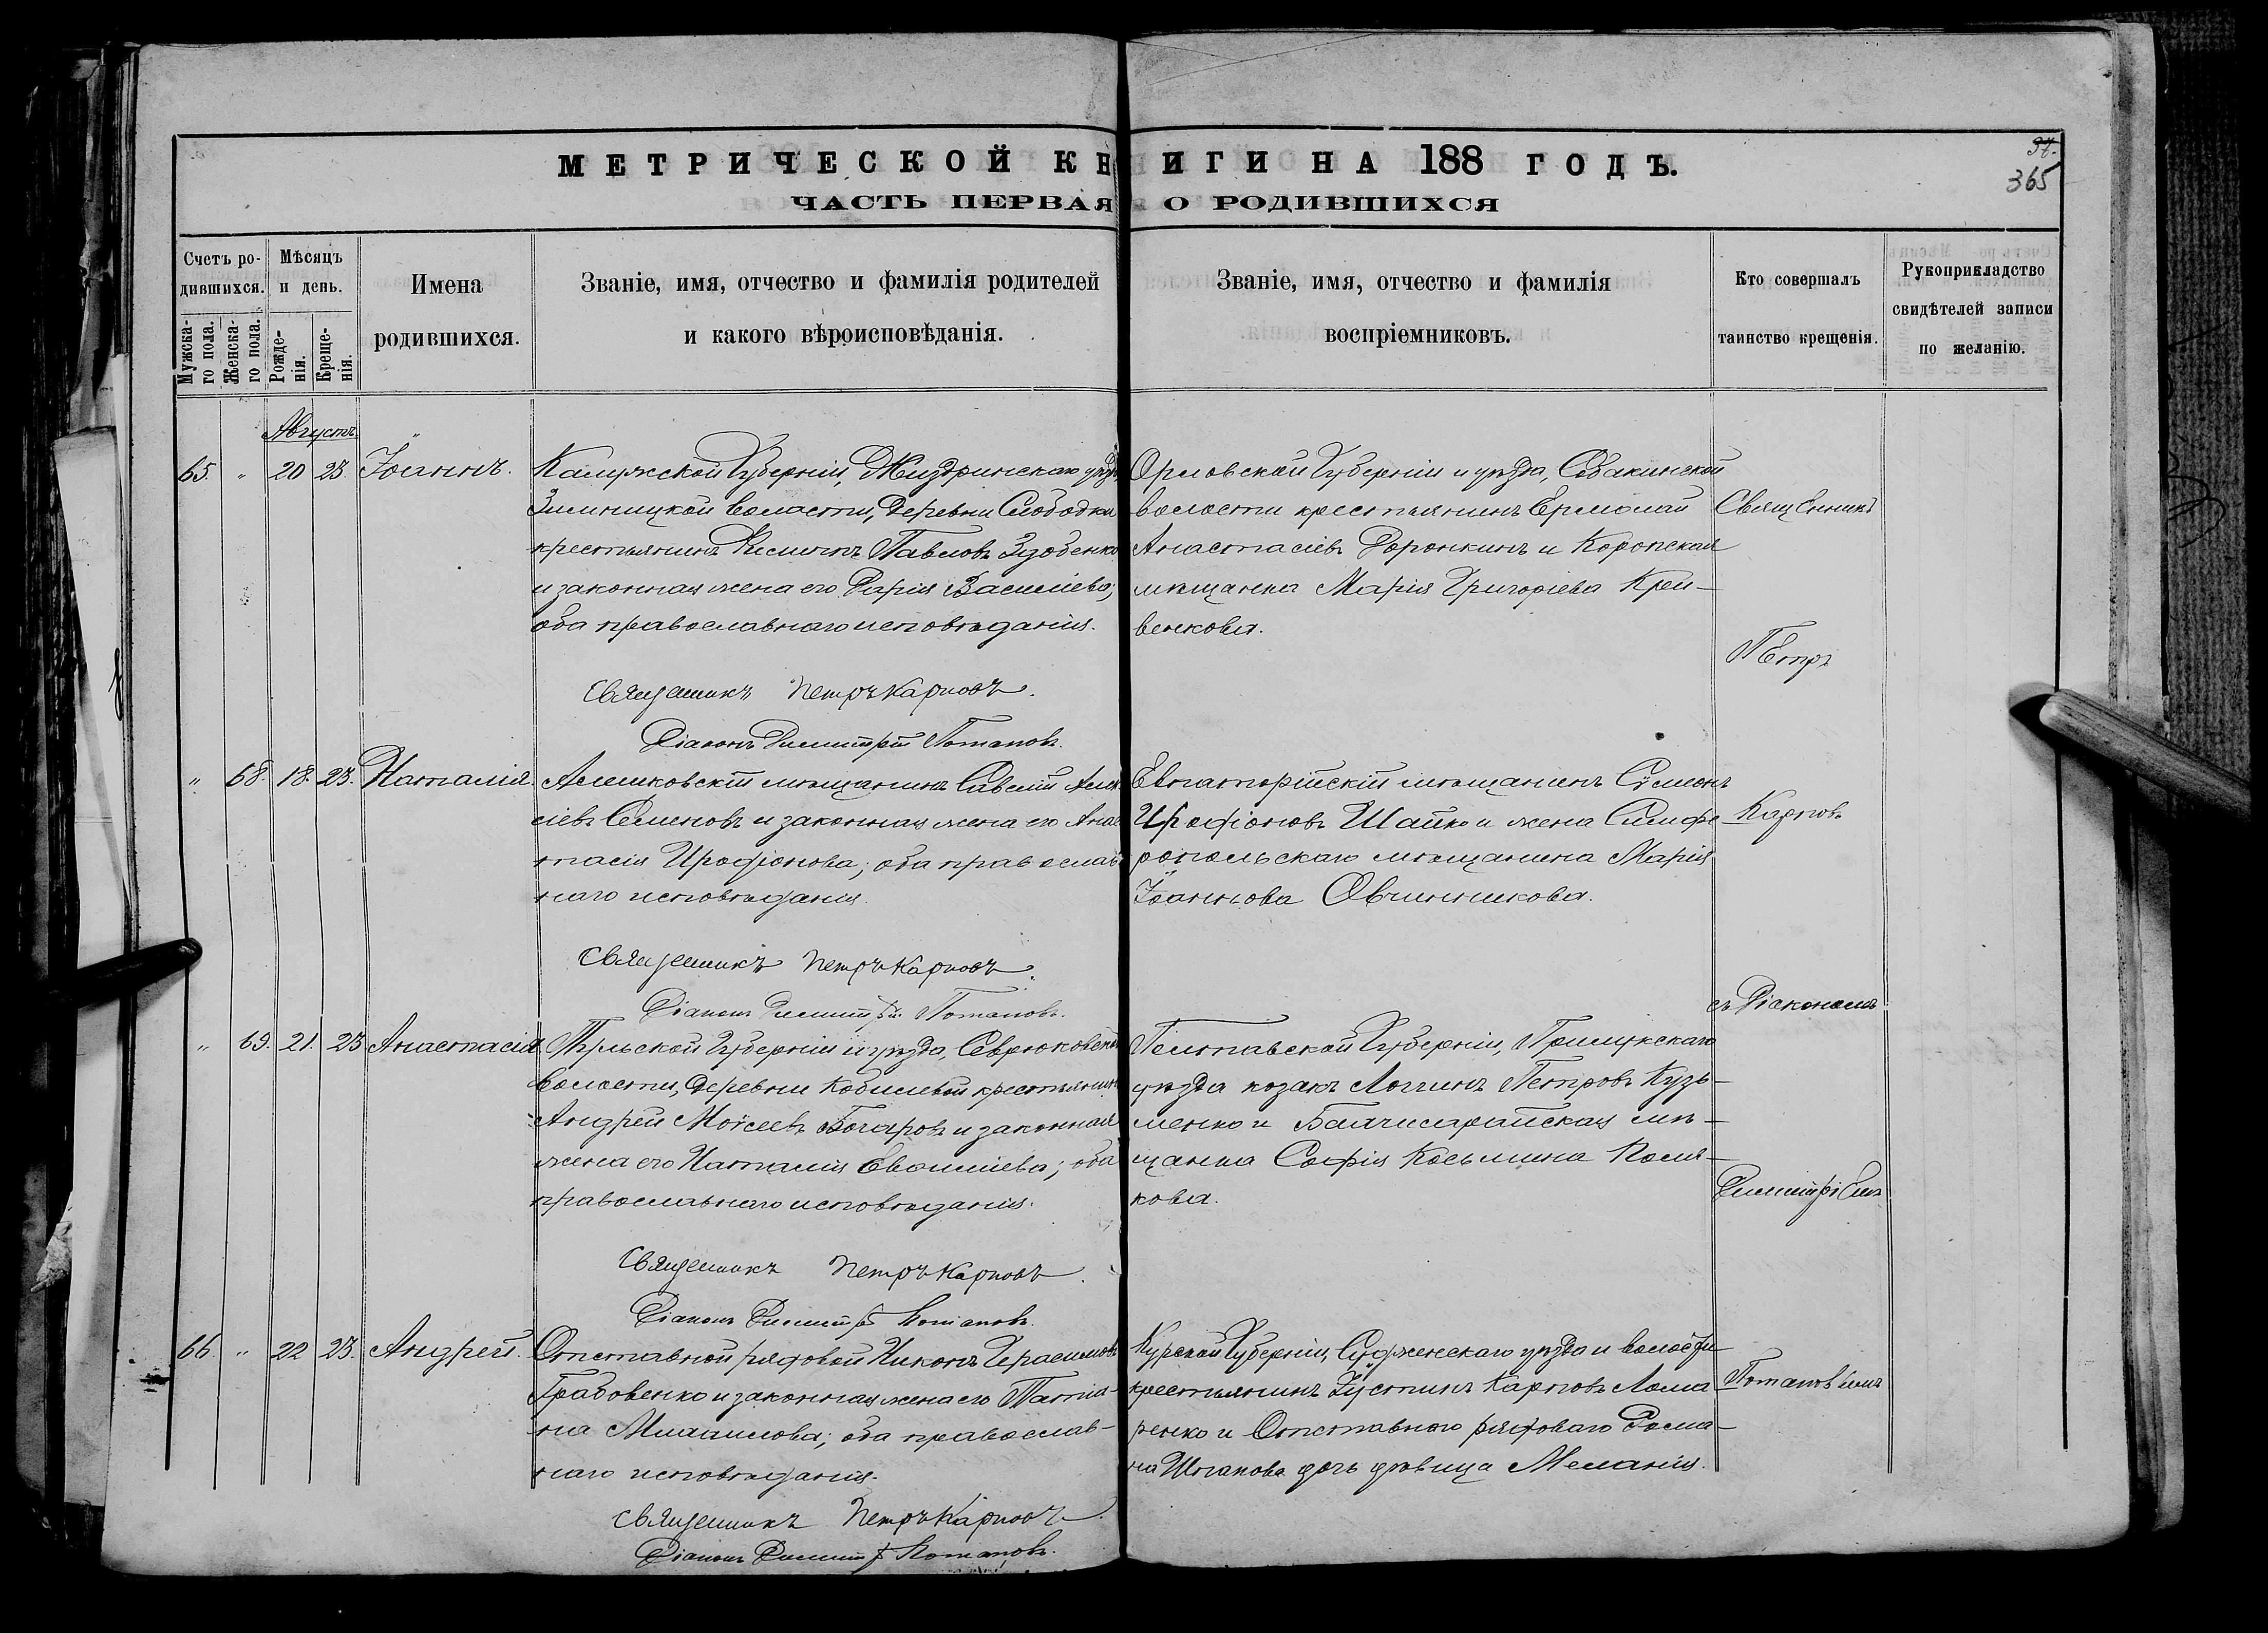 МЕТРИЧЕСКОЙ КНИГИ НА 188 ГОДЪ.
37.
365
ЧАСТЬ ПЕРВАЯ О РОДИВШИХСЯ
Счетъ родившихся.
Мужскаго пола.
Женскаго пола.
Мѣсяцъ и день.
Рожденія.
Крещенія.
Имена родившихся.
Званіе, имя, отчество и фамилія родителей
и какого вѣроисповѣданія.
Званіе, имя, отчество и фамилія
воспріемниковъ.
Кто совершалъ
таинство крещенія.
Рукоприкладство
свидѣтелей записи
по желанію.
Августъ
65. " 20 23. Іоаннъ.
Калужской Губерніи, Жиздринскаго уѣзда
волости, деревни Слободки
крестьянинъ Павловъ Здобенко
и законная жена его Дарія Василіева;
оба православнаго исповѣданія.
Священникъ Петръ Карповъ.
Діаконъ Димитрій Потаповъ.
Орловской Губерніи и уѣзда, Собакинской
волости крестьянинъ Ермолай
Анастасіевъ Доронкинъ и Коропская
мѣщанка Марія Григоріева Крей-
венкова.
" 68. 18. 23. Наталія.
Алешковскій мѣщанинъ Савелій Алек
сіевъ Семеновъ и законная жена его Анас
тасія Иродіонова; оба православ
наго исповѣданія.
Священникъ Петръ Карповъ.
Діаконъ Димитрій Потаповъ.
Евпаторійскій мѣщанинъ Симеонъ
Иродіоновъ Шайко и жена Симфе
ропольскаго мѣщанина Марія
Іоаннова Овчинникова.
" 69. 21. 23 Анастасія
Тульской Губерніи и уѣзда, Севрюковской
волости, деревни крестьянинъ
Андрей Моѵсеевъ и законная
жена его Наталія; оба
православнаго исповѣданія.
Священникъ Петръ Карповъ.
Діаконъ Димитрій Потаповъ.
Полтавской Губерніи, Прилукскаго
уѣзда козакъ Логгинъ Петровъ Кузь-
менко и Бахчисарайская мѣ-
щанка Софія Косьмина Поля-
кова.
66. " 22 23. Андрей.
Отставной рядовой Никонъ Герасимовъ
Грабовенко и законная жена его Татіа-
на Михаилова; оба православ-
наго исповѣданія.
Священникъ Петръ Карповъ.
Діаконъ Димитрій Потаповъ.
Курской Губерніи, Суджанскаго уѣзда и волости
крестьянинъ Іустинъ Карповъ Лома-
ренко и Отставного рядоваго Рома-
на дочь дѣвица Меланія.
Священникъ
Петръ
Карповъ
съ Діакономъ
Димитріемъ
Потаповымъ